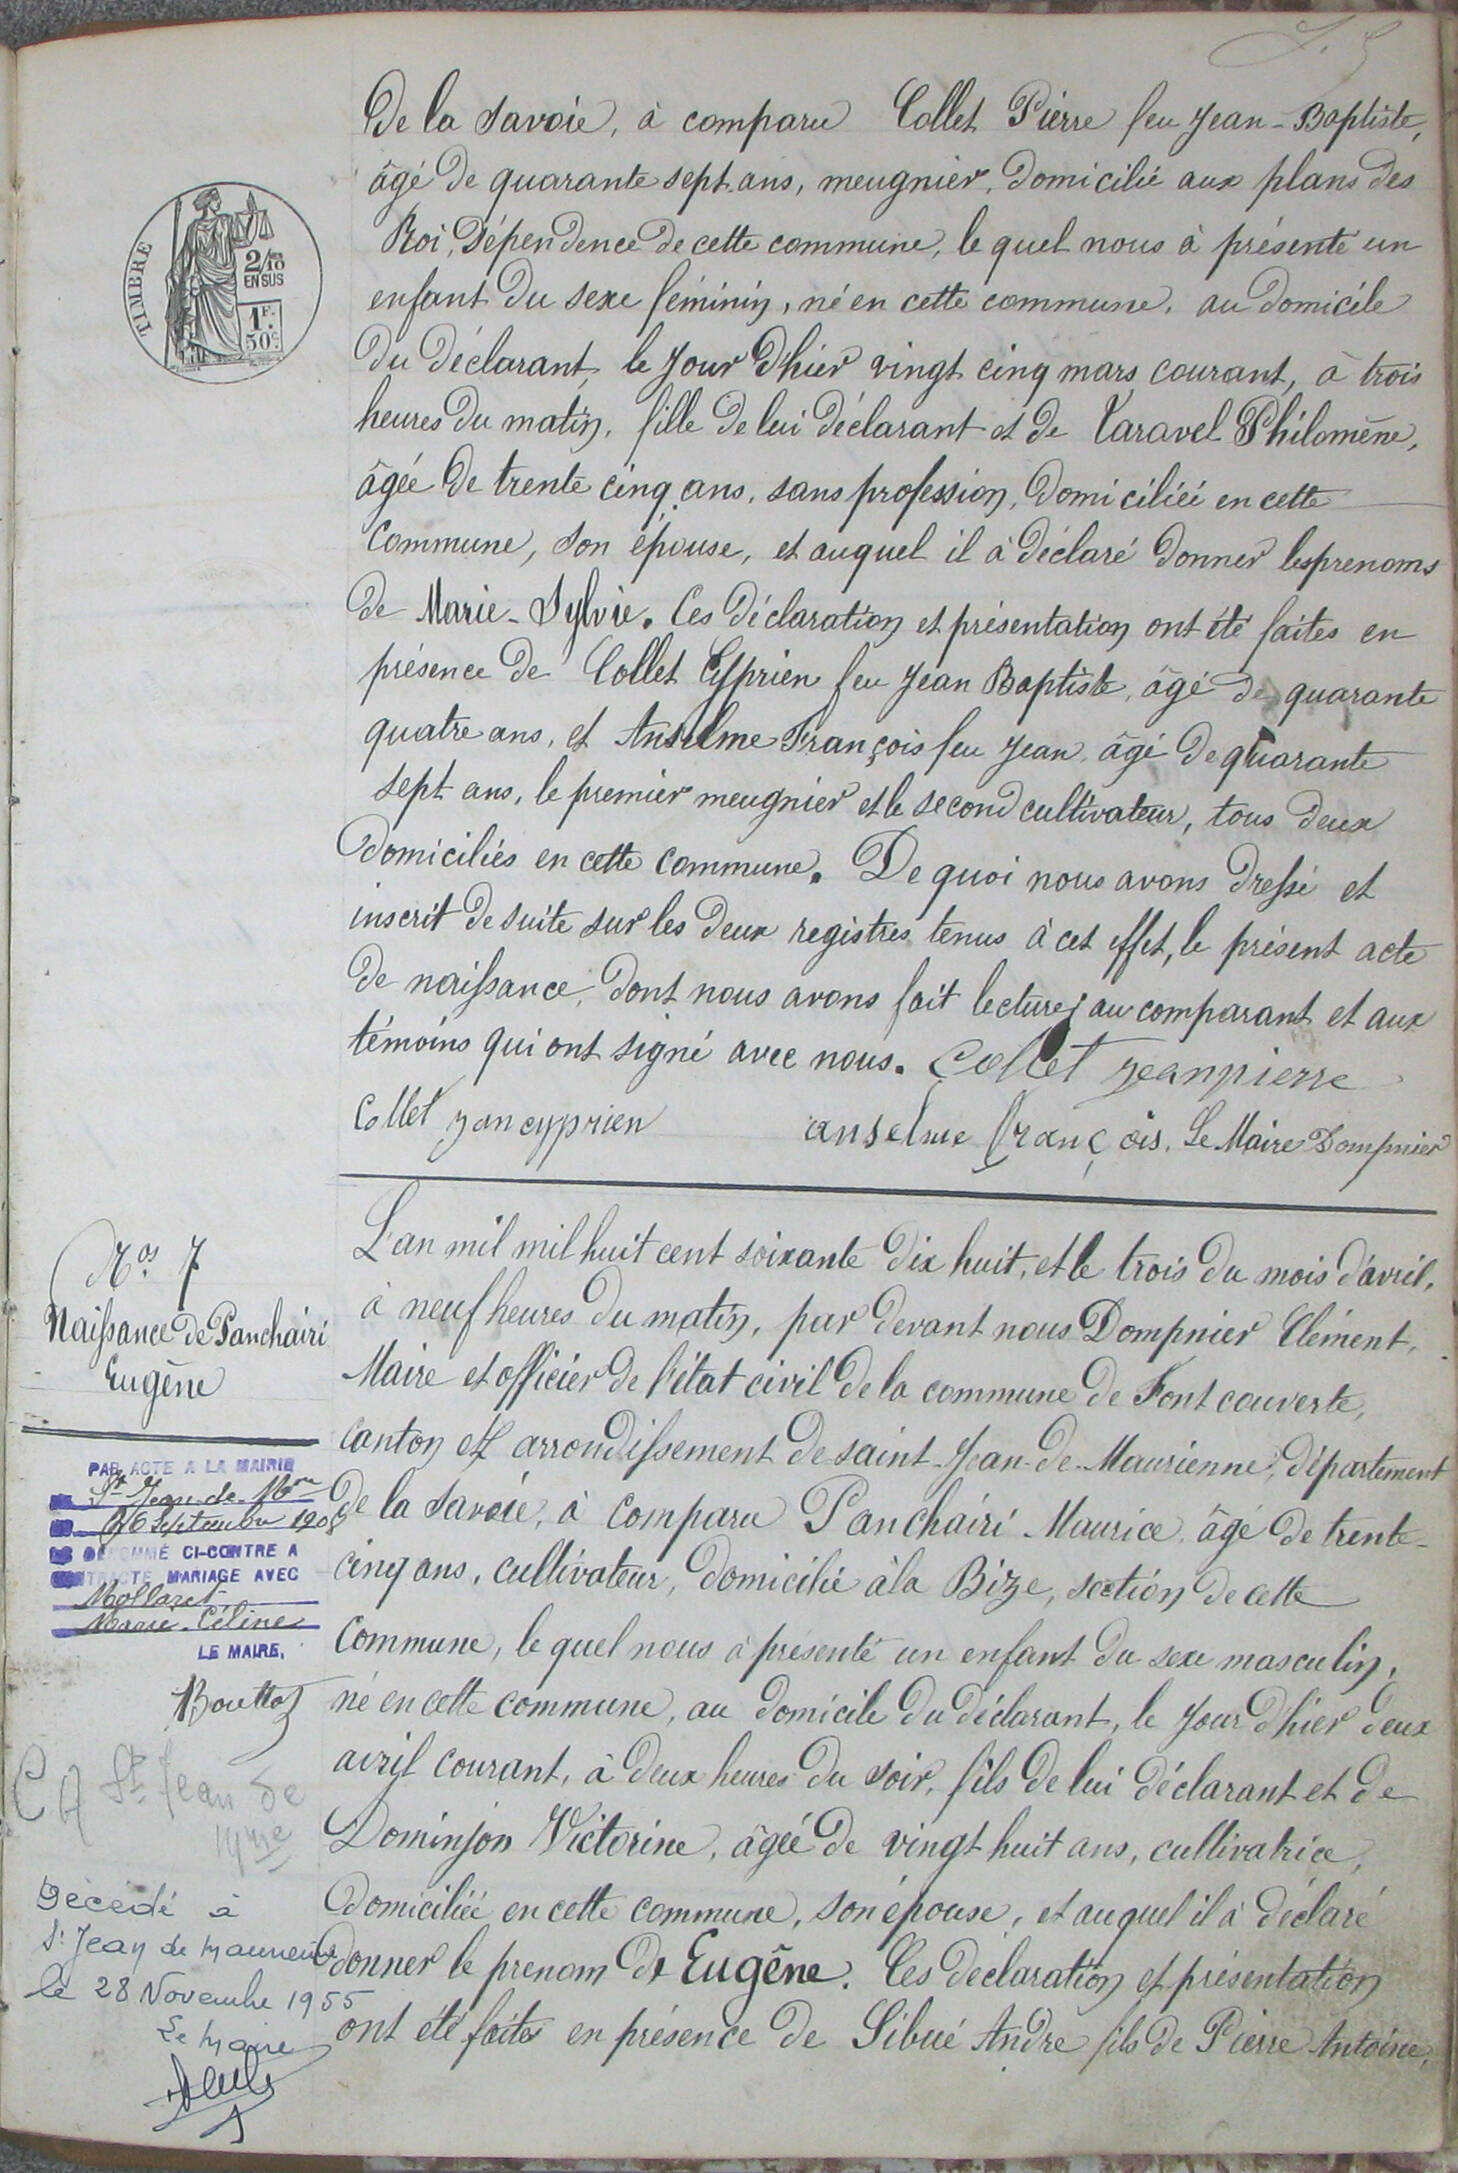 De la Savoie, à comparu Collet Pierre feu Jean-Baptiste,
âgé de quarante sept ans, meugnier, domicilié aux plans des
Roi, Dépendence de cette commune, le quel nous à présenté un
enfant du sexe féminin, né en cette commune, au domicile
du déclarant, le jour d'hier vingt cinq mars courant, à trois
heures du matin, fille de lui déclarant et de Taravel Philomène,
âgée de trente cinq ans, sans profession, domiciliéé en cette
commune, son épouse, et auquel il à déclaré donner les prenoms
de Marie-Sylvie. Ces déclaration et présentation ont été faites en
présence de Collet Cyprien feu Jean Baptiste, âgé de quarante
quatre ans, et Anselme François feu Jean, âgé de quarante
sept ans, le premier meugnier et le second cultivateur, tous deux
domiciliés en cette commune. De quoi nous avons dressé et
inscrit de suite sur les deux registres tenus à cet effet, le présent acte
de naissance, dont nous avons fait lecture, au comparant et aux
témoins qui ont signé avec nous. Collet jeanpierre
Collet jan cyprien anselme françois. Le Maire Dompnier
TIMBRE
2/10 EN SUS
1F. 50c
Nos 7
Naissance de Panchairi
Eugène
L'an mil mil huit cent soixante dix huit, et le trois du mois d'avril,
à neuf heures du matin, par devant nous Dompnier Clément,
Maire et officier de l'état civil de la commune de Fontcouverte,
canton et arrondissement de saint-Jean-de-Maurienne, département
de la Savoie, à comparu Panchairi Maurice, âgé de trente-
cinq ans, cultivateur, domicilié à la Bize, section de cette
commune, le quel nous à présenté un enfant du sexe masculin,
né en cette commune, au domicile du déclarant, le jour d'hier deux
avril courant, à deux heures du soir, fils de lui déclarant et de
Dominjon Victorine, âgéé de vingt huit ans, cultivatrice,
domiciliéé en cette commune, son épouse, et auquel il à déclaré
donner le prenom de Eugène. Ces déclaration et présentation
ont été faites en présence de Sibué André fils de Pierre Antoine,
PAR ACTE A LA MAIRIE
St Jean-de-Mne
26 Septembre 1908
DÉNOMMÉ CI-CONTRE A
CONTRACTÉ MARIAGE AVEC
Mollaret
Marie-Céline
LE MAIRE,
St Jean de
Décédé à
St Jean de Maurienne
le 28 Novembre 1955
Le Maire